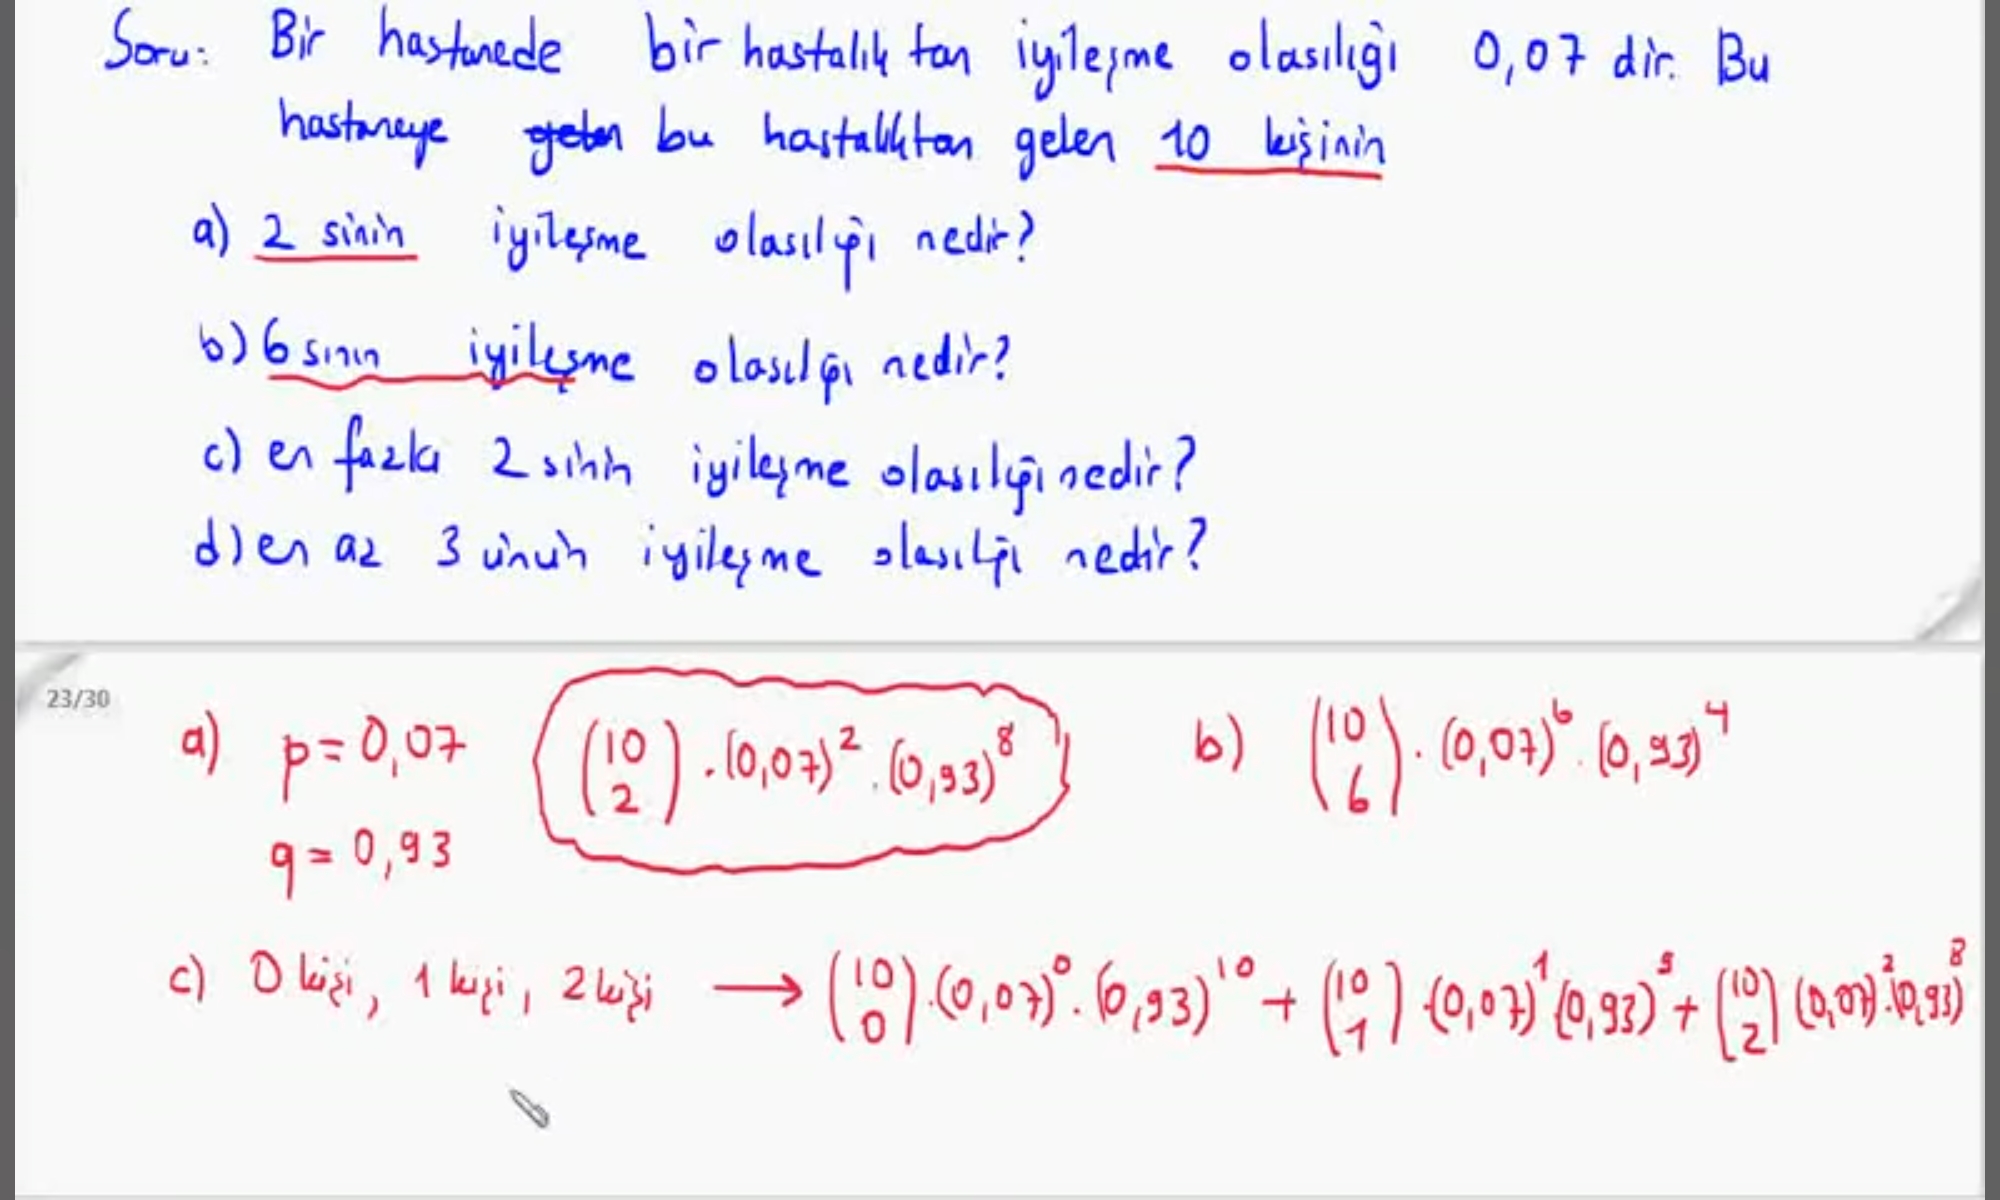 Soru: Bir hastanede bir hastalıktan iyileşme olasılığı 0,07 dir. Bu
hastaneye gelen bu hastalıktan gelen 10 kişinin
a) 2 sinin iyileşme olasılığı nedir?
b) 6 sının iyileşme olasılığı nedir?
c) en fazla 2 sinin iyileşme olasılığı nedir?
d) en az 3 ünün iyileşme olasılığı nedir?
23/30
a) p = 0,07 (10 2) . (0,07)² . (0,93)⁸ b) (10 6) . (0,07)⁶ . (0,93)⁴
q = 0,93
c) 0 kişi, 1 kişi, 2 kişi → (10 0) . (0,07)⁰ . (0,93)¹⁰ + (10 1) . (0,07)¹ (0,93)⁹ + (10 2) (0,07)² . (0,93)⁸